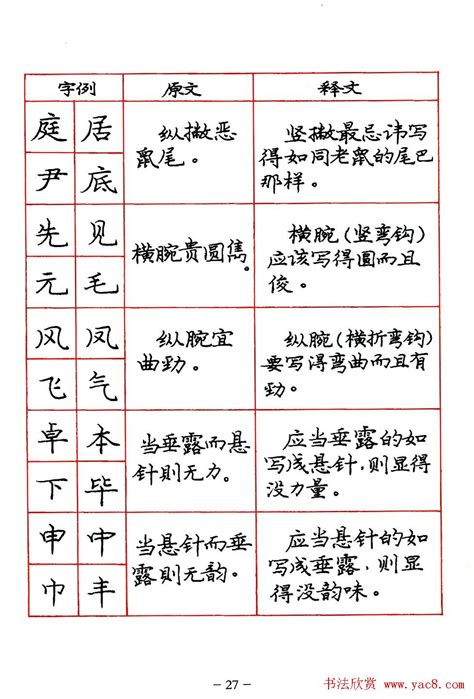 字例 原文 释文
庭 居
尹 底
纵撇恶
鼠尾。
竖撇最忌讳写
得如同老鼠的尾巴
那样。
先 见
元 毛
横腕贵圆
。
横腕(竖弯钩)
应该写得圆而且
俊。
风 凤
飞 气
纵腕宜
曲劲。
纵腕(横折弯钩)
要写得弯曲而且有
劲。
卓 本
下 毕
当垂露而悬
针则无力。
应当垂露的如
写成悬针,则显得
没力量。
申 中
巾 丰
当悬针而垂
露则无韵。
应当悬针的如
写成垂露,则显
得没韵味。
- 27 -
书法欣赏
www.yac8.com